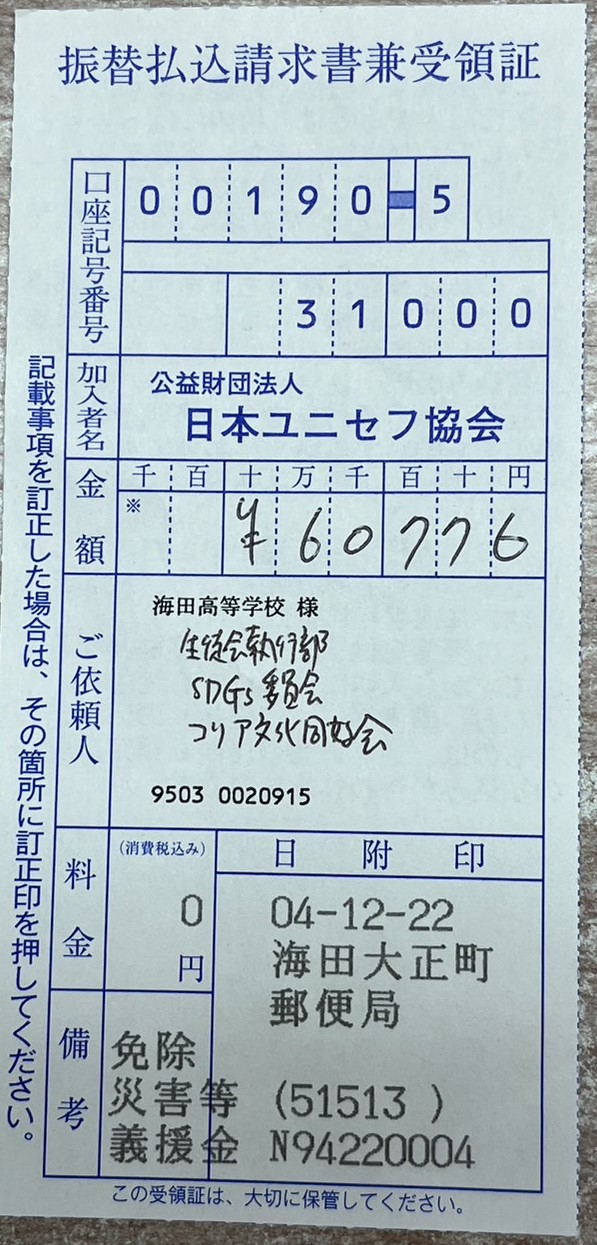 振替払込請求書兼受領証
口座記号番号
00190-5
31000
加入者名
公益財団法人
日本ユニセフ協会
金額
千百十万千百十円
※
¥60776
ご依頼人
海田高等学校 様
生徒会執行部
SDGs委員会
コリア文化同好会
9503 0020915
料金
(消費税込み)
0
円
日附印
04-12-22
海田大正町
郵便局
備考
免除
災害等 (51513 )
義援金 N94220004
この受領証は、大切に保管してください。
記載事項を訂正した場合は、その箇所に訂正印を押してください。